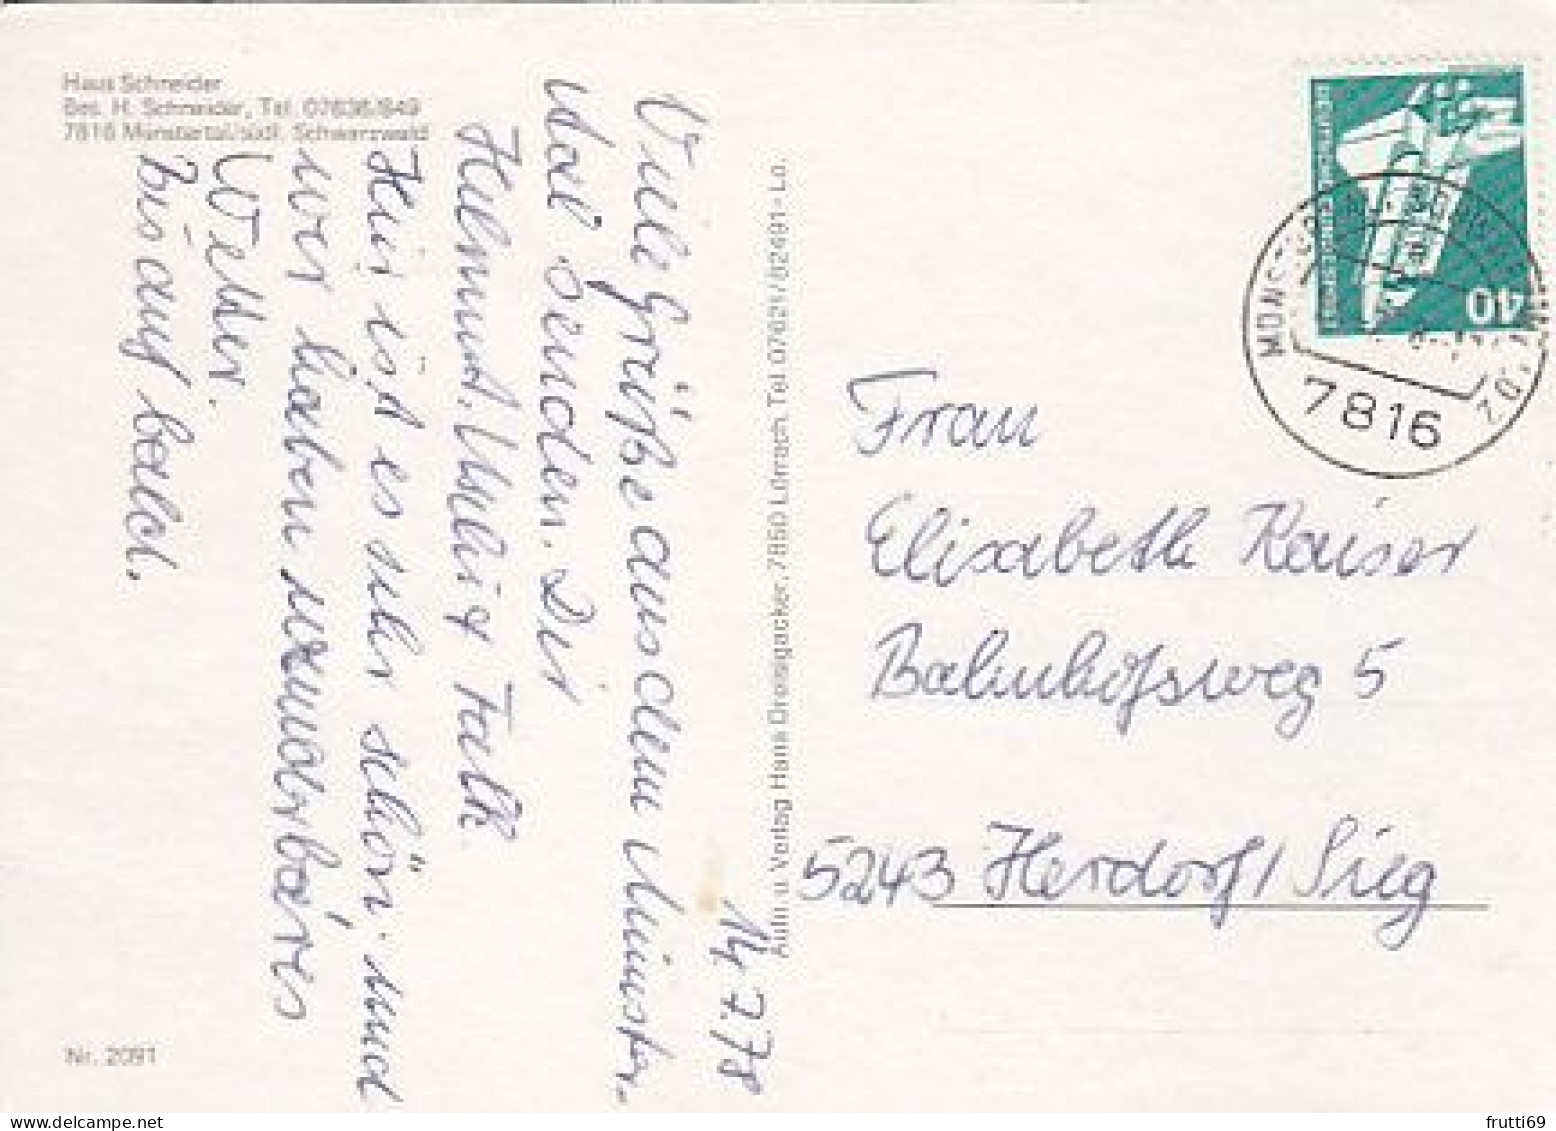 Haus Schneider
Bes. H. Schneider, Tel. 07636/849
7816 Münstertal/südl. Schwarzwald
14.7.78
Viele Grüße aus dem Münster-
tal senden. Dir
Helmut, Uschi + Falk
Hier ist es sehr schön. und
wir haben wunderbares
Wetter.
Bis auf bald.
Nr. 2091
Aufn. u. Verlag Hans Dreisigacker, 7850 Lörrach, Tel. 07621/82491 - Lo
40
7816
Frau
Elisabeth Kaiser
Bahnhofsweg 5
5243 Herdorf/Sieg
frutti69